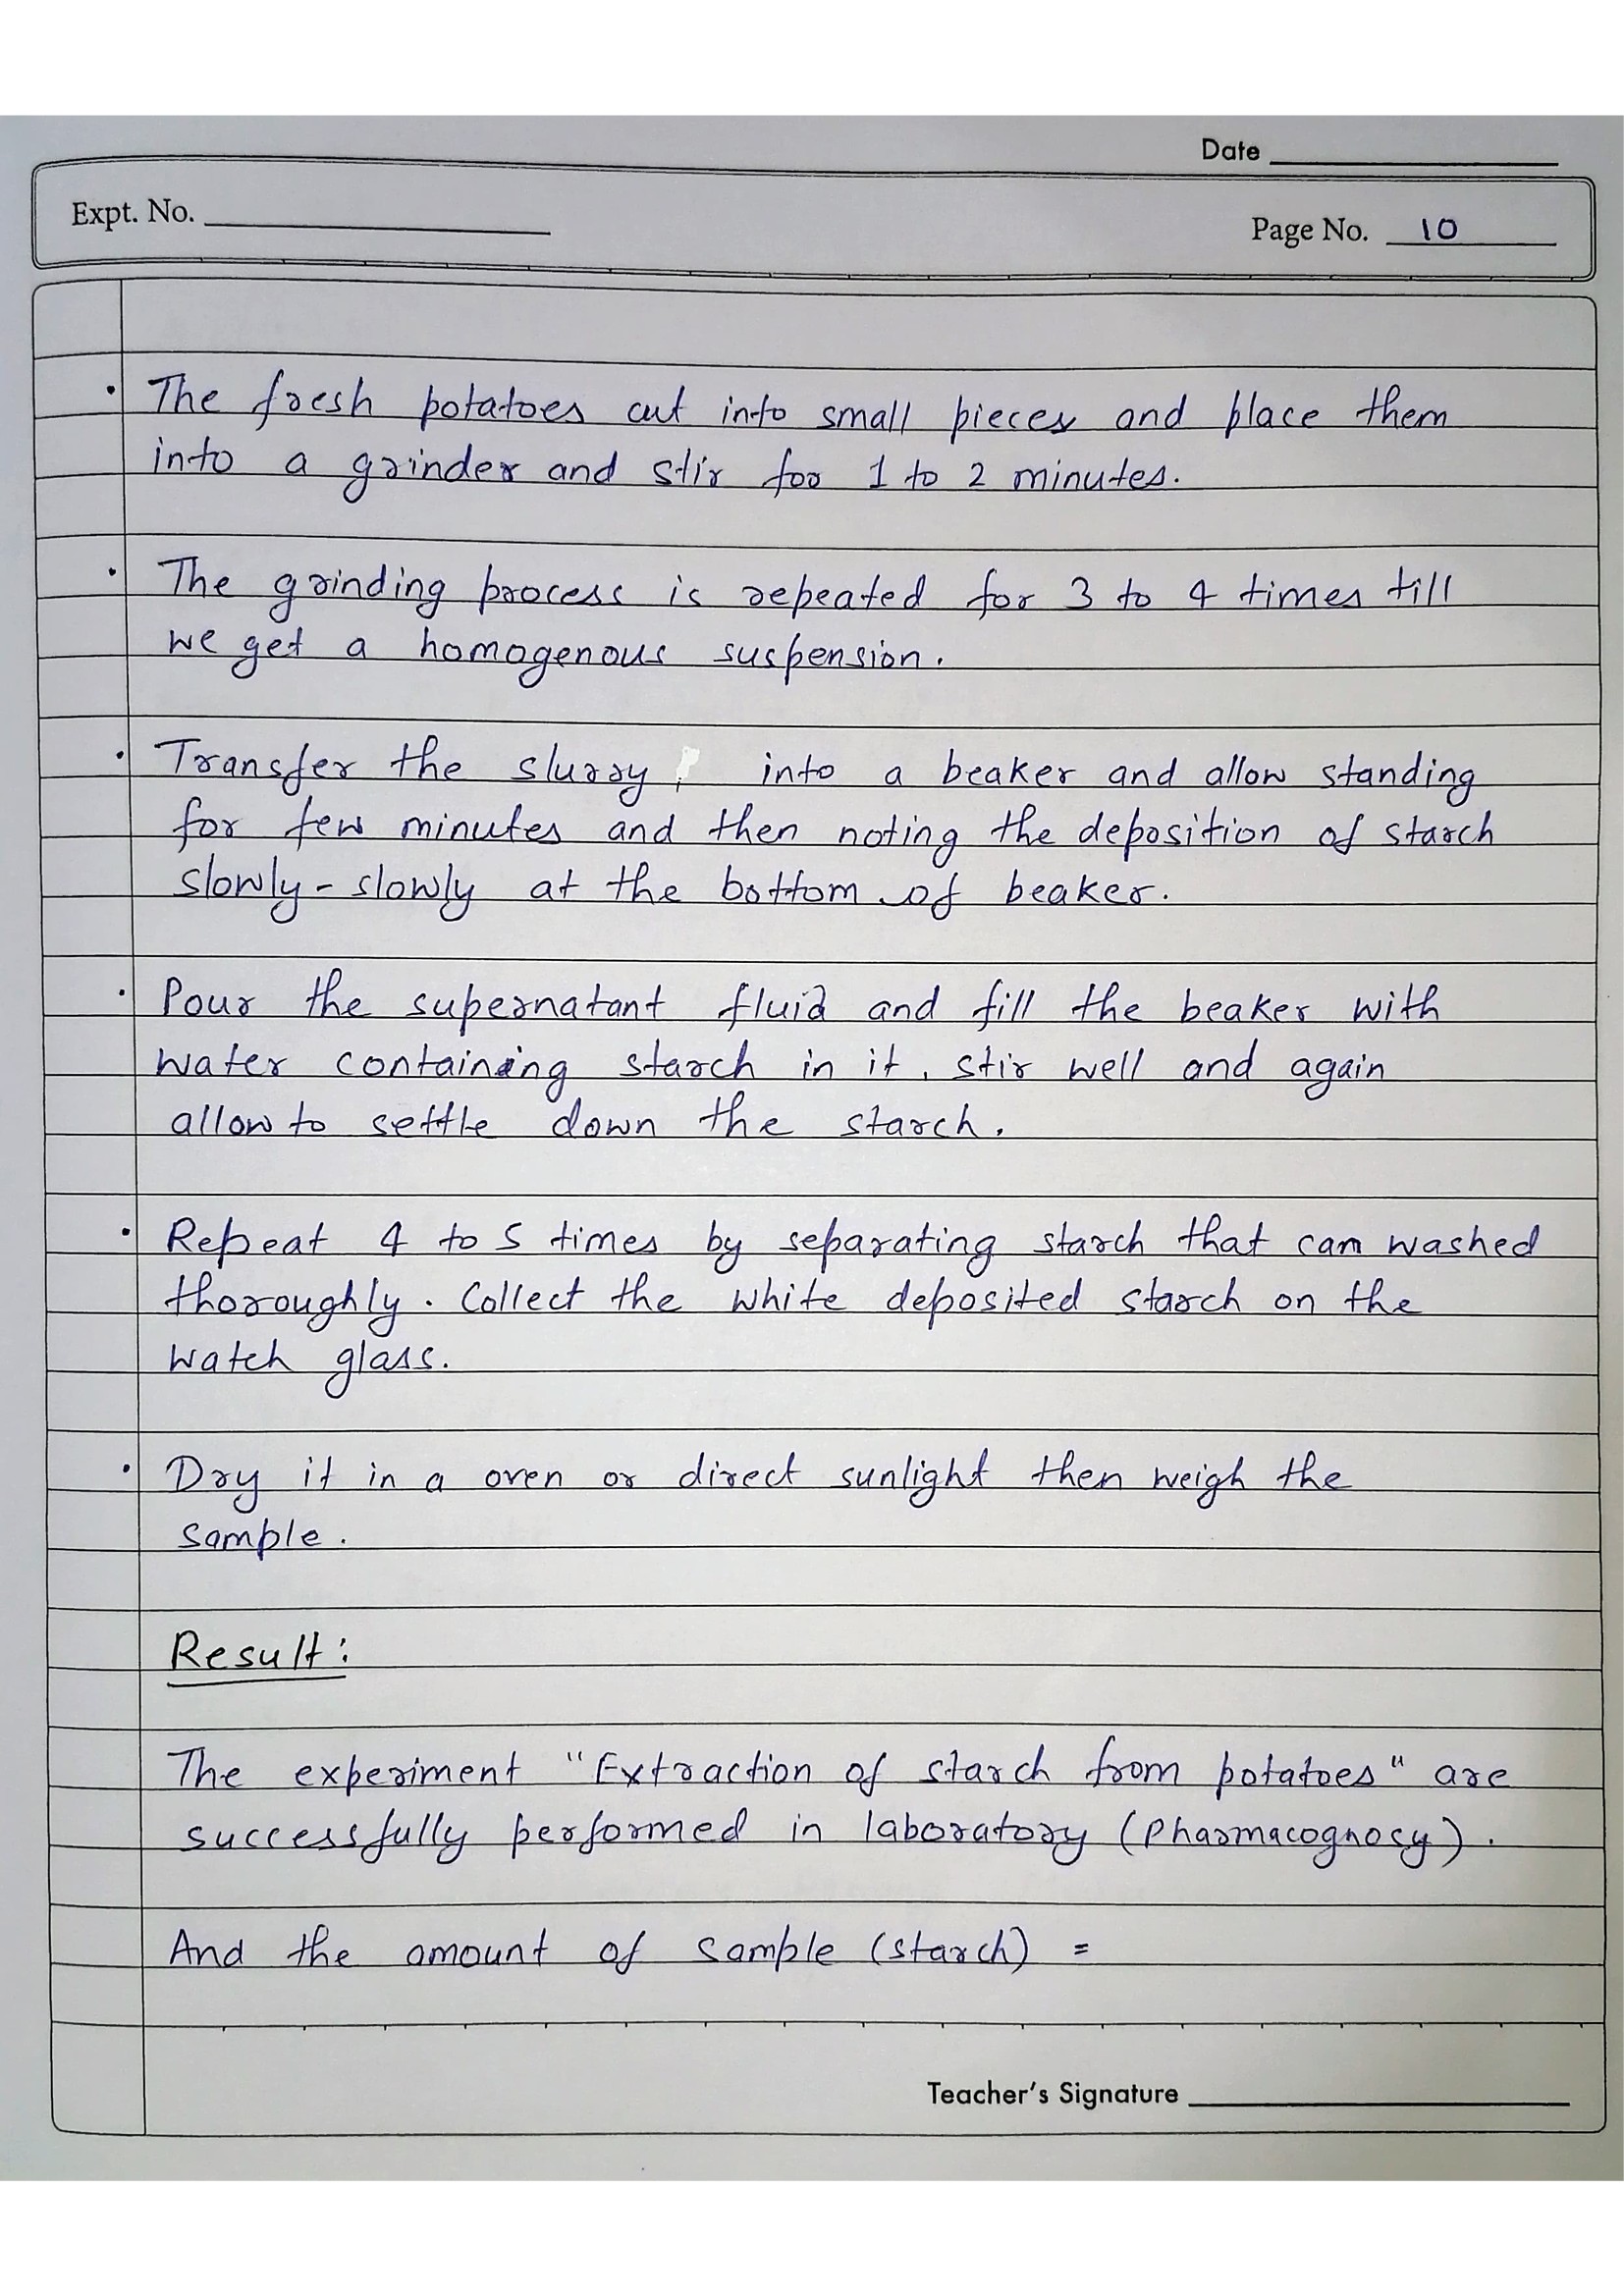 Date
Expt. No.
Page No. 10
· The fresh potatoes cut into small pieces and place them
into a grinder and stir for 1 to 2 minutes.
· The grinding process is repeated for 3 to 4 times till
we get a homogenous suspension.
· Transfer the slurry into a beaker and allow standing
for few minutes and then noting the deposition of starch
slowly-slowly at the bottom of beaker.
· Pour the supernatant fluid and fill the beaker with
water containing starch in it, stir well and again
allow to settle down the starch.
· Repeat 4 to 5 times by separating starch that can washed
thoroughly. Collect the white deposited starch on the
watch glass.
· Dry it in a oven or direct sunlight then weigh the
sample.
Result:
The experiment "Extraction of starch from potatoes" are
successfully performed in laboratory (Pharmacognosy).
And the amount of sample (starch) =
Teacher's Signature